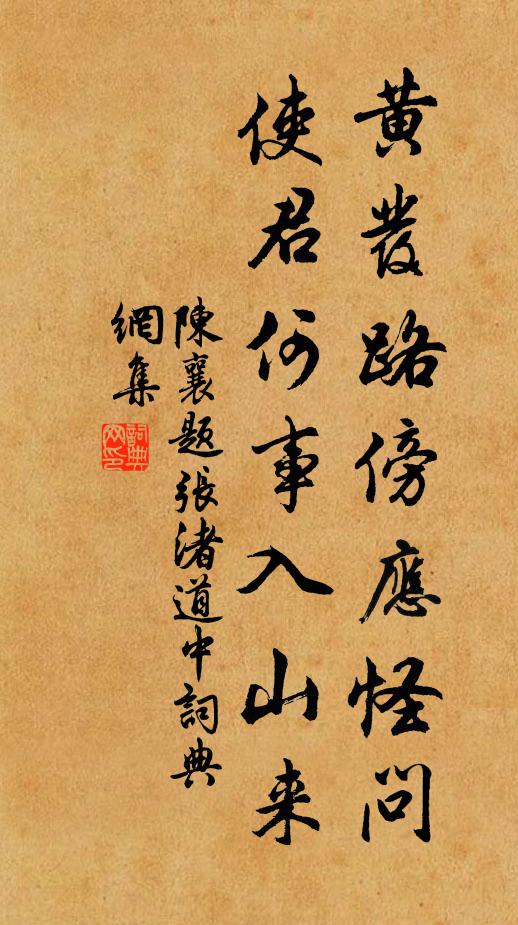 黄發路傍應怪問
使君何事入山来
陳襄題張渚道中詞典
網集
詞典網印